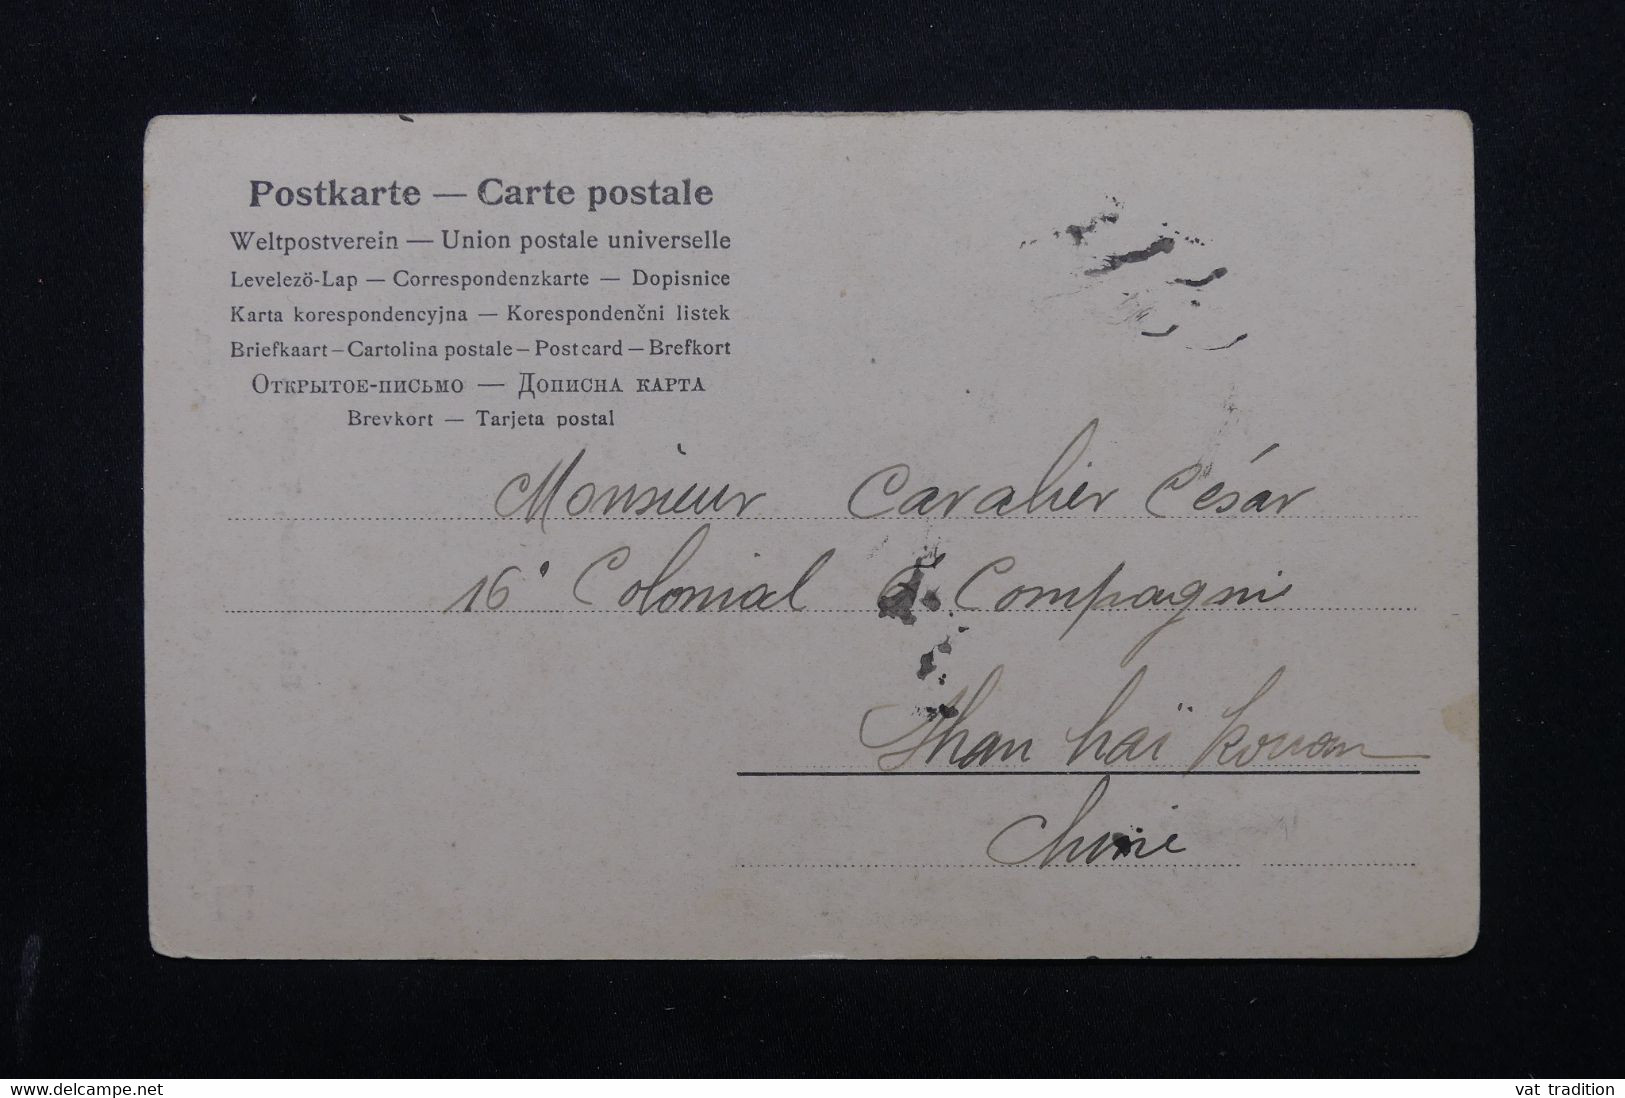 Postkarte — Carte postale
Weltpostverein — Union postale universelle
Levelezö-Lap — Correspondenzkarte — Dopisnice
Karta korespondencyjna — Korespondenčni listek
Briefkaart – Cartolina postale – Post card – Brefkort
Открытое-письмо — Дописна карта
Brevkort — Tarjeta postal
Monsieur Cavalier César
16e Colonial Compagnie
Shan haï Kouan
Chine
www.delcampe.net
vat tradition